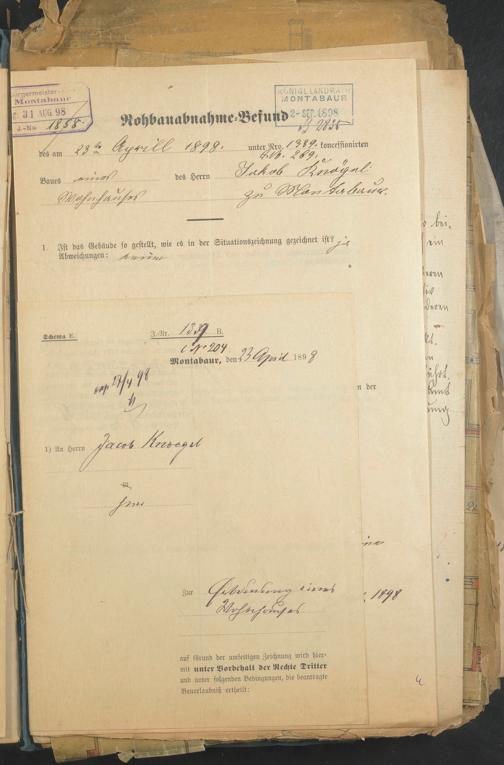 Bürgermeister
Montabaur
31 AUG 98
J.-No 1855
KÖNIGL LANDRATH
MONTABAUR
2-SEP.1898
Rohbauabnahme-Befund
des am 23 ten Aprill 1898. unter Nro. 1389. konzessionirten
269.
Baues eines des Herrn Jakob Knögel
Wohnhauses zu Montabaur.
1. Ist das Gebäude so gestellt, wie es in der Situationszeichnung gezeichnet ist? ja
Abweichungen: keine
Schema E. J.-Nr. 1389 B.
C № 204
Montabaur, den 23 April 1898
27/4 98
n der
1) An Herrn Jacob Knoegel
hier
Zur Erbauung eines
Wohnhauses
1898
auf Grund der umseitigen Zeichnung wird hier-
mit unter Vorbehalt der Rechte Dritter
und unter folgenden Bedingungen, die beantragte
Bauerlaubniß ertheilt: